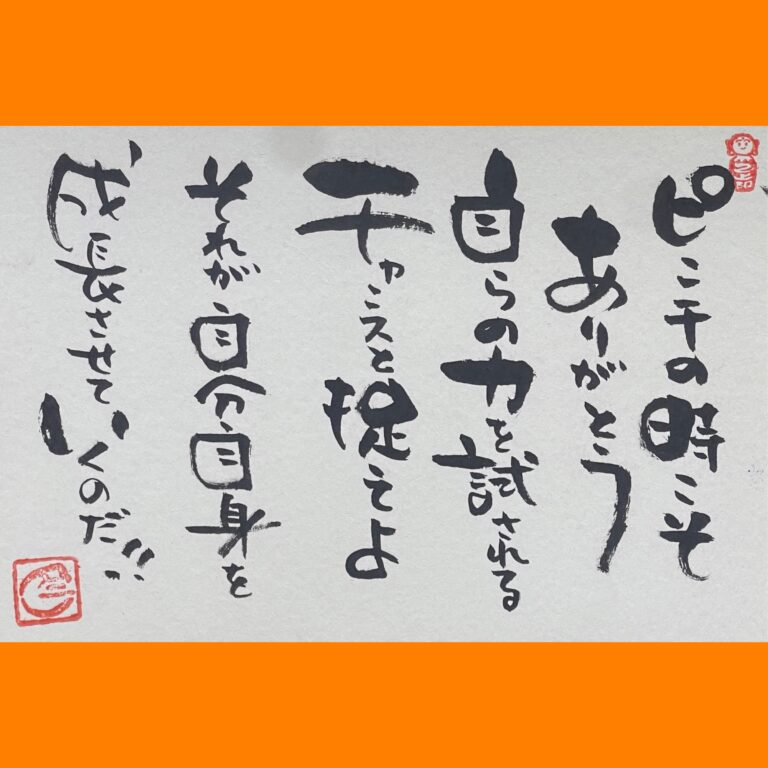 ピンチの時こそ
ありがとう
自らの力を試される
チャンスと捉えよ
それが自分自身を
成長させていくのだ!!